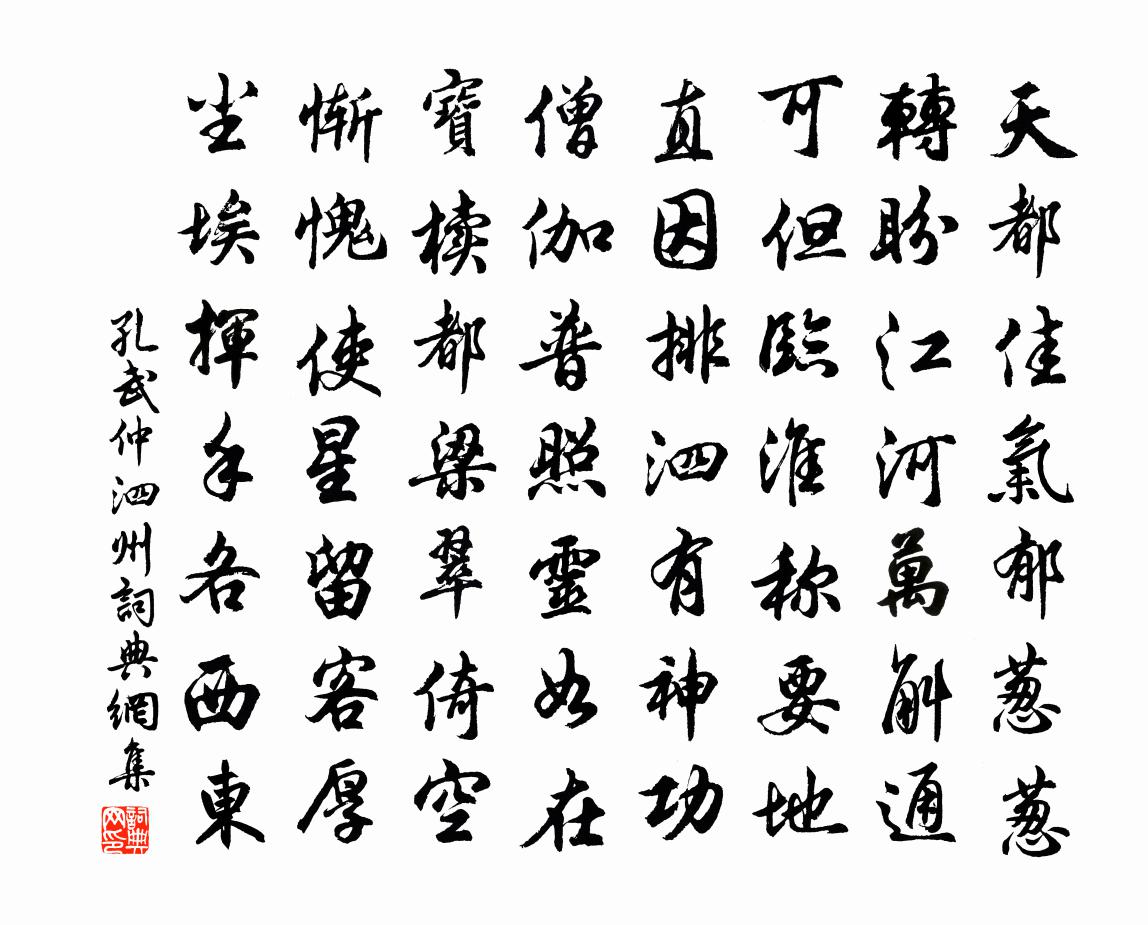 天都佳氣郁葱葱
轉盼江河萬斛通
可但臨淮称要地
直因排泗有神功
僧伽普照靈如在
寶櫝都梁翠倚空
慚愧使星留客厚
尘埃揮手各西東
孔武仲泗州詞典網集
詞典网印